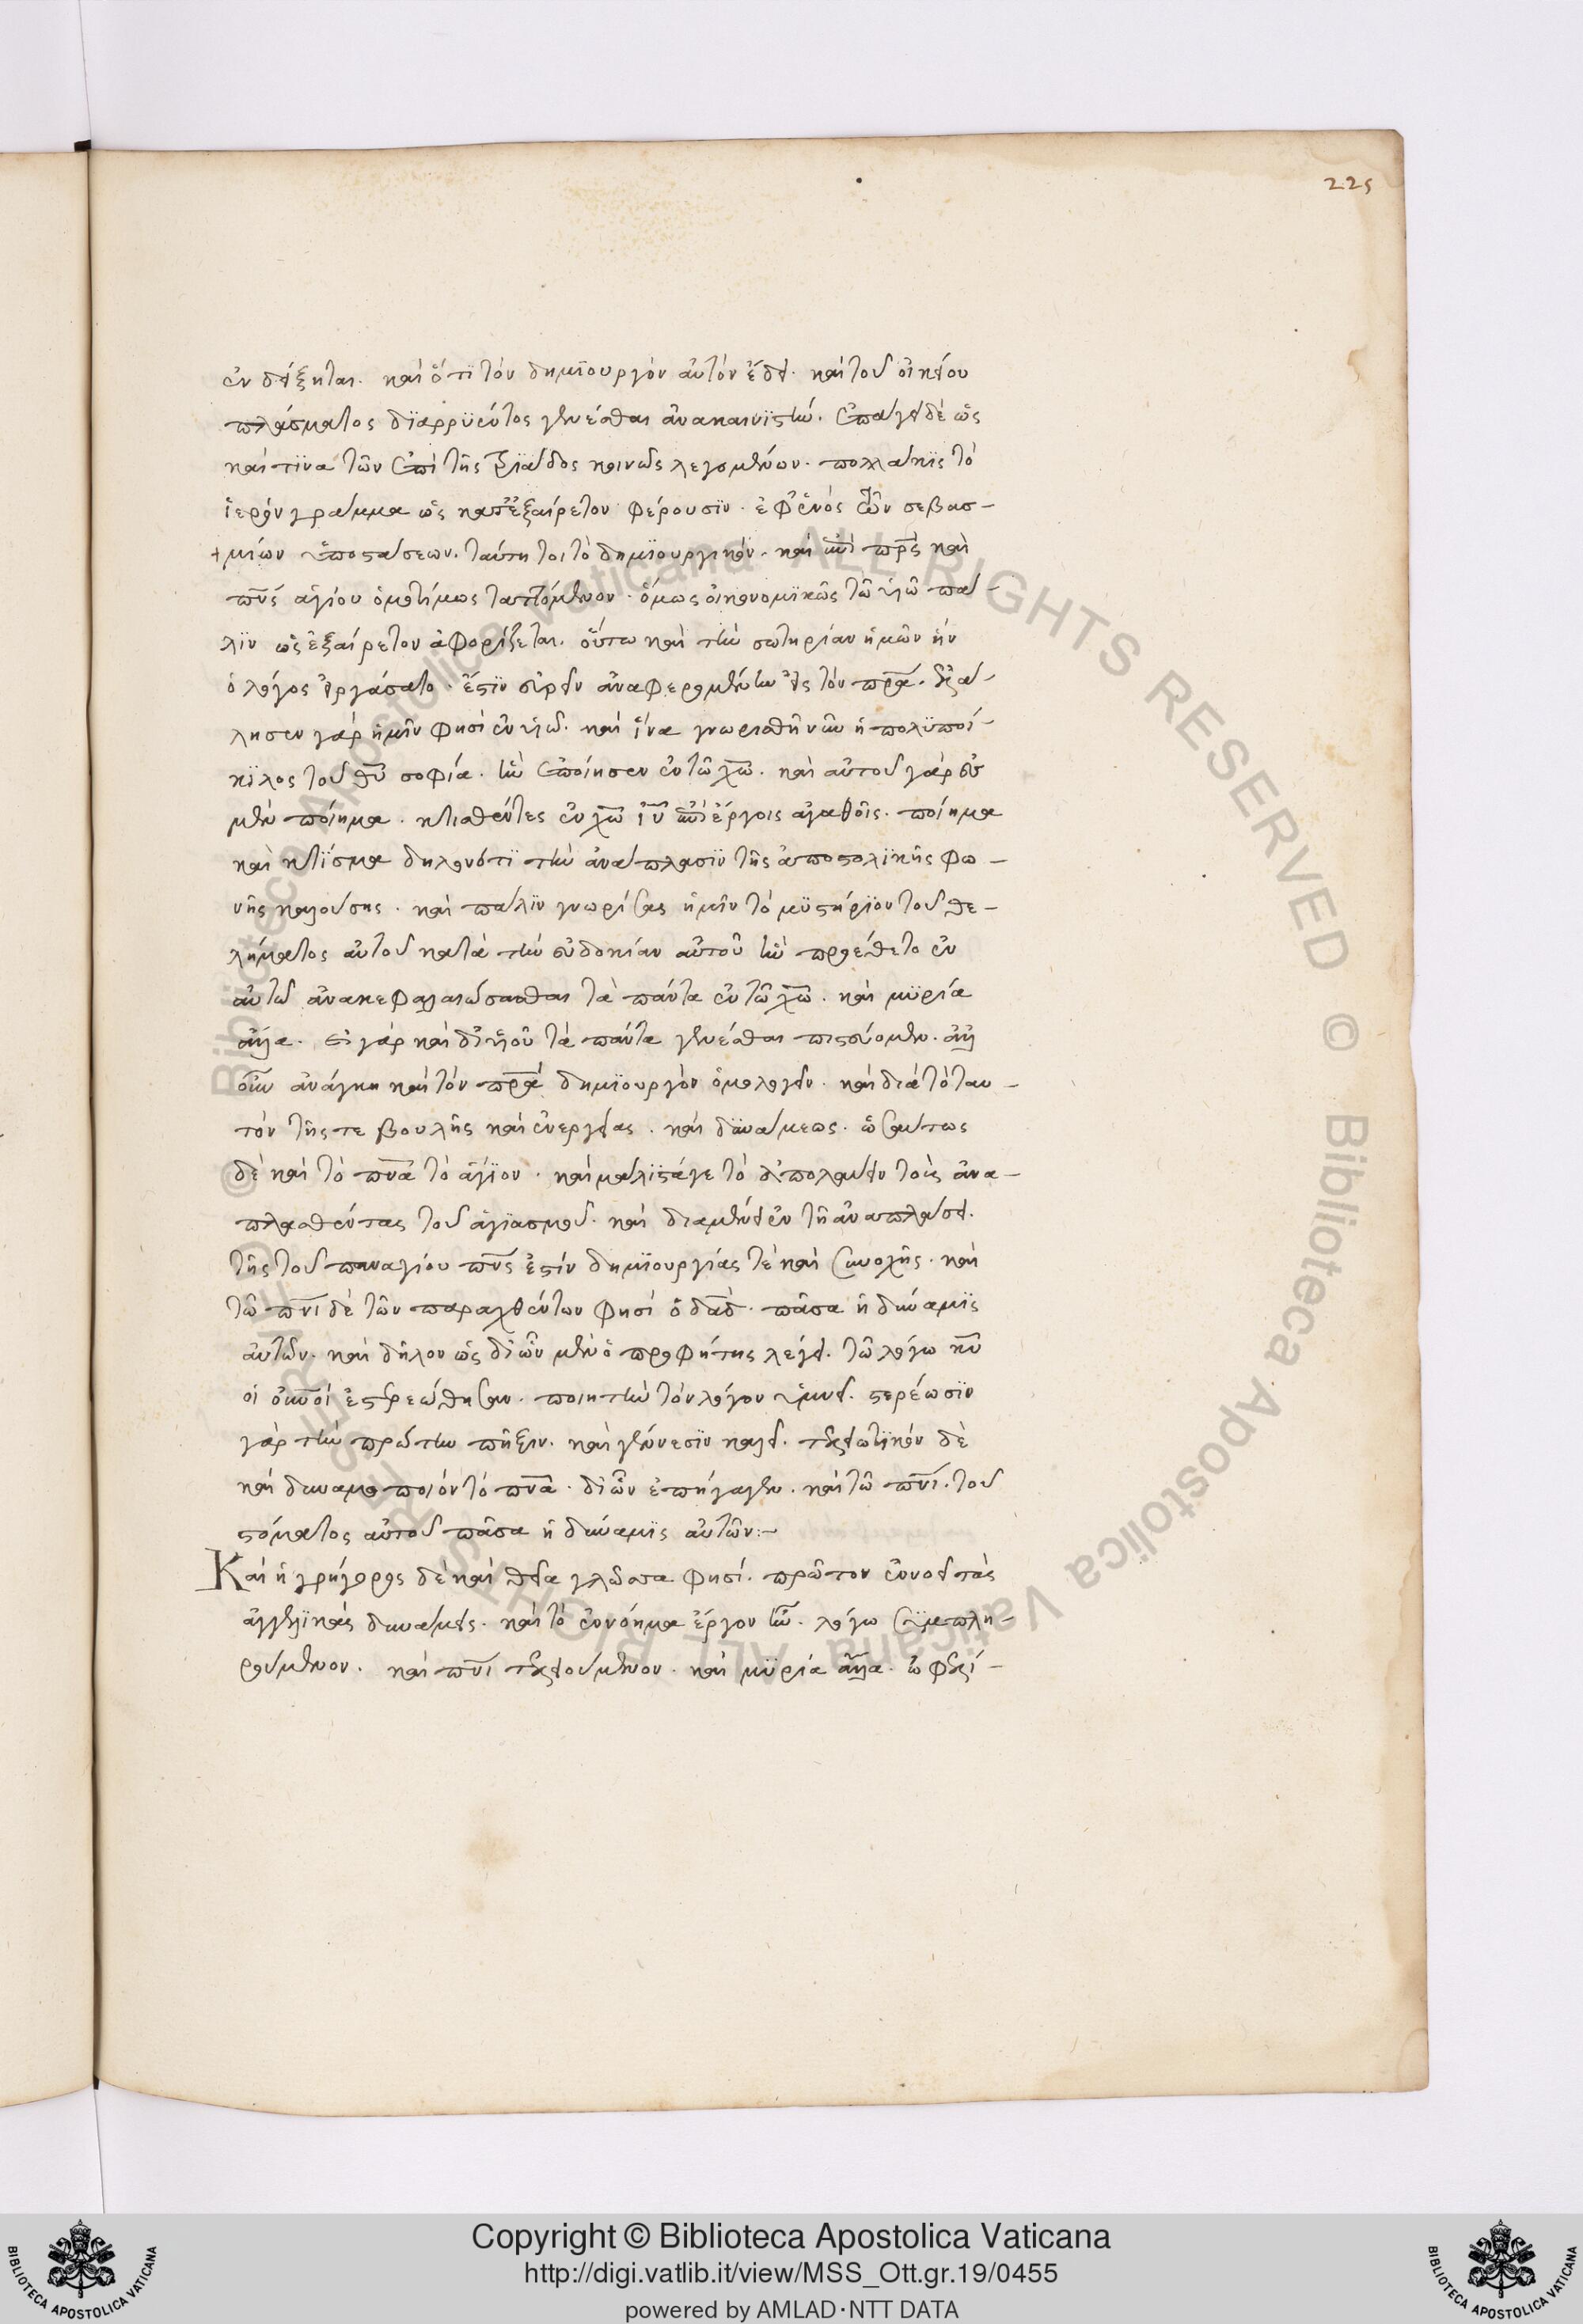 225
ἐνδείξηται. καὶ ὅτι τὸν δημιουργὸν αὐτὸν ἔδει. καὶ τοῦ οἰκείου
πλάσματος διαρρυέντος γενέσθαι ἀνακαινιστήν. ἐπάγει δὲ ὡς
καί τινα τῶν ἐπὶ τῆς τριάδος κοινῶς λεγομένων. πολλάκις τὸ
ἱερὸν γράμμα ὡς κατ' ἐξαίρετον φέρουσιν. ἐφ' ἑνὸς τῶν σεβασ-
μίων ὑποστάσεων. ταύτη τοι τὸ δημιουργικόν. καὶ ἐπὶ πρς καὶ
πνς ἁγίου ὁμοτίμως ταττόμενον. ὅμως οἰκονομικῶς τῶ υἱῶ πά-
λιν ὡς ἐξαίρετον ἀφορίζεται. οὕτω καὶ τὴν σωτηρίαν ἡμῶν ἣν
ὁ λόγος εἰργάσατο. ἔστιν εὑρεῖν ἀναφερομένην εἰς τὸν πρα.
λησεν γὰρ ἡμῖν φησὶ ἐν υἱῶ. καὶ ἵνα γνωρισθῆ νῦν ἡ πολυποί-
κιλος τοῦ θυ σοφία. ἣν ἐποίησεν ἐν τῶ χω. καὶ αὐτοῦ γάρ ἐσ
μεν ποίημα. κτισθέντες ἐν χω ιυ ἐπὶ ἔργοις ἀγαθοῖς. ποίημα
καὶ κτίσμα δηλονότι τὴν ἀνάπλασιν τῆς ἀποστολικῆς φω-
νῆς καλούσης. καὶ πάλιν γνωρίσας ἡμῖν τὸ μυστήριον τοῦ θε-
λήματος αὐτοῦ κατὰ τὴν εὐδοκίαν αὐτοῦ ἣν προέθετο ἐν
αὐτῶ ἀνακεφαλαιώσασθαι τὰ πάντα ἐν τῶ χω. καὶ μυρία
ἄλλα. εἰ γὰρ καὶ δι' υἱοῦ τὰ πάντα γενέσθαι πιστεύομεν. ἀλλ'
οὖν ἀνάγκη καὶ τὸν πρα δημιουργὸν ὁμολογεῖν. καὶ διὰ τὸ ταυ-
τὸν τῆς τε βουλῆς καὶ ἐνεργείας. καὶ δυνάμεως. ὡσαύτως
δὲ καὶ τὸ πνα τὸ ἅγιον. καὶ μάλιστά γε τὸ ἀπολαύειν τοὺς ἀνα-
πλασθέντας τοῦ ἁγιασμοῦ. καὶ διαμένειν ἐν τῆ ἀναπλάσει.
τῆς τοῦ παναγίου πνς ἐστὶν δημιουργίας τὲ καὶ συνοχῆς. καὶ
τῶ πνι δὲ τῶν παραχθέντων φησὶ ὁ δαδ. πᾶσα ἡ δύναμις
αὐτῶν. καὶ δῆλον ὡς δι' ὧν μὲν ὁ προφήτης λέγει. τῶ λόγω κυ
οἱ οὐνοὶ ἐστερεώθησαν. ποιητὴν τὸν λόγον ὑμνεῖ. στερέωσιν
γὰρ τὴν πρώτην πῆξιν. καὶ γέννεσιν καλεῖ. τελειωτικὸν δὲ
καὶ δυναμοποιὸν τὸ πνα. δι' ὧν ἐπήγαγεν. καὶ τῶ πνι. τοῦ
στόματος αὐτοῦ πᾶσα ἡ δύναμις αὐτῶν:-
Καὶ ἡ γρήγορος δὲ καὶ θεία γλῶσσα φησί. πρῶτον ἐννοεῖ τὰς
ἀγγελικὰς δυνάμεις. καὶ τὸ ἐννόημα ἔργον ἦν. λόγω συμπλη-
ρούμενον. καὶ πνι τελειούμενον. καὶ μυρία ἄλλα.